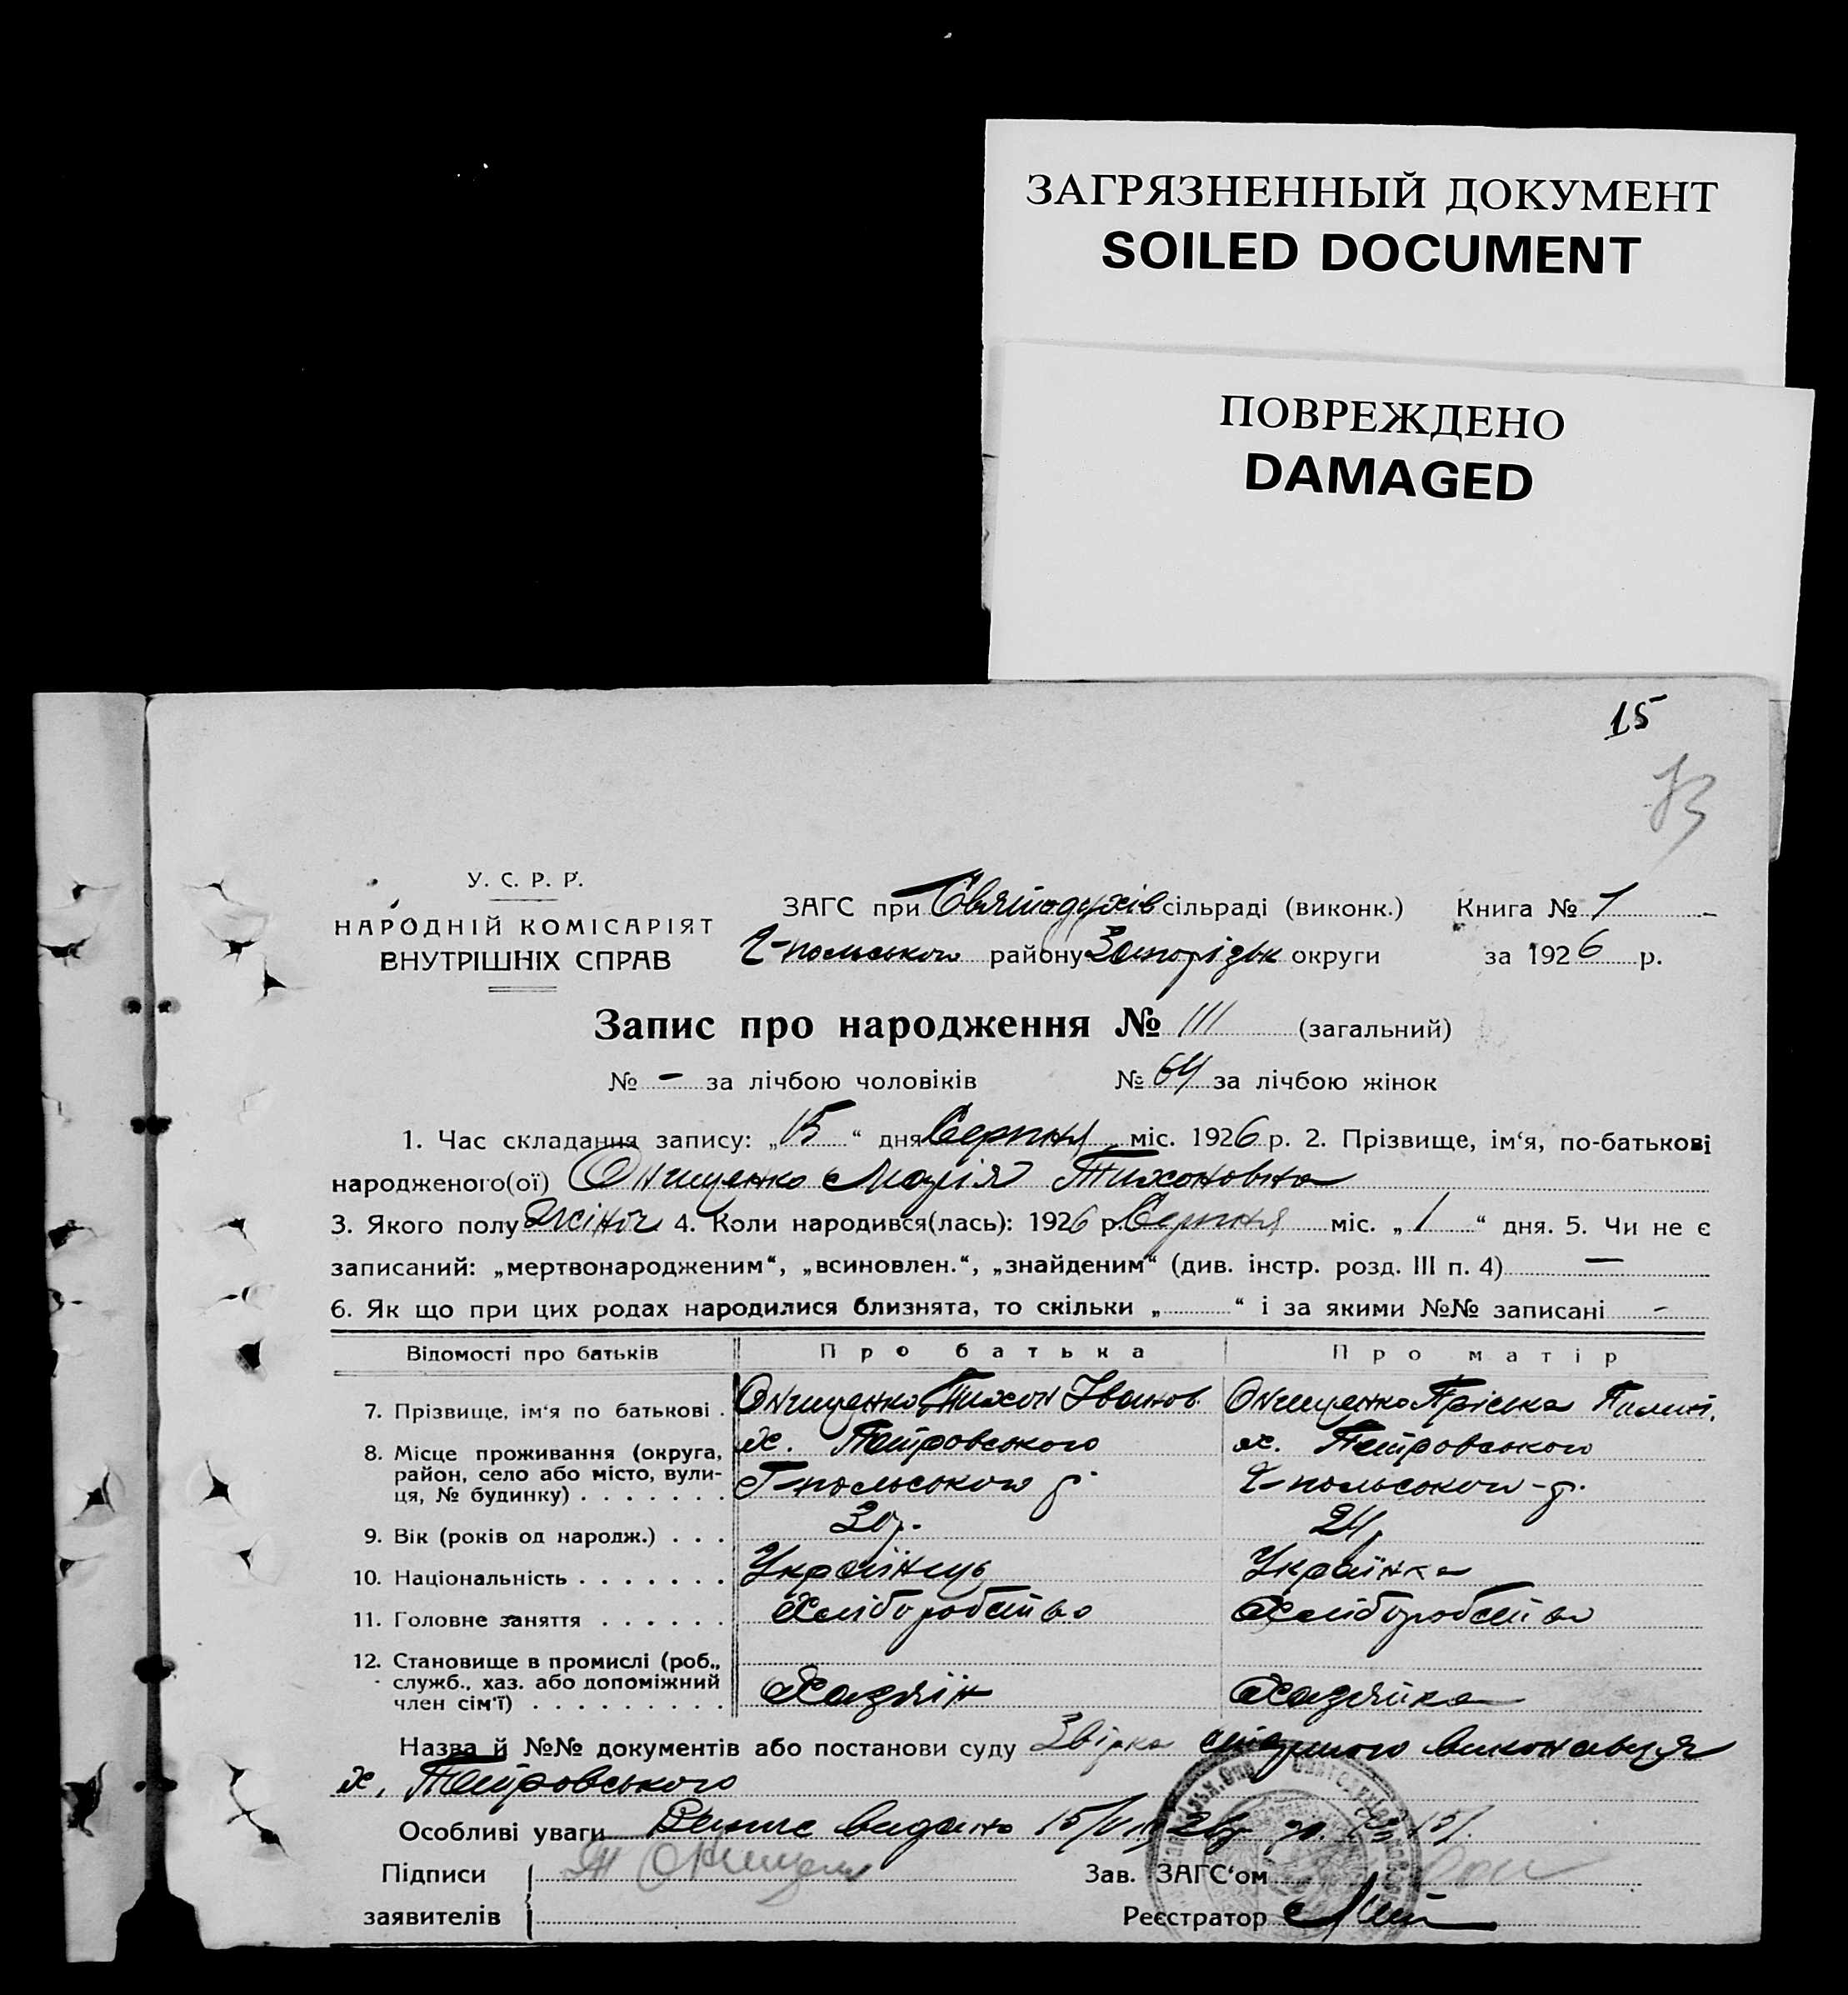 ЗАГРЯЗНЕННЫЙ ДОКУМЕНТ
SOILED DOCUMENT
ПОВРЕЖДЕНО
DAMAGED
15
У. С. Р. Р.
НАРОДНІЙ КОМІСАРІЯТ
ВНУТРІШНІХ СПРАВ
ЗАГС при Святодухів сільраді (виконк.) Книга № 1
Г-польського району Запорізьк округи за 1926 р.
Запис про народження № 111 (загальний)
№ – за лічбою чоловіків № 64 за лічбою жінок
1. Час складання запису: „15“ дня Серпня міс. 1926 р. 2. Прізвище, ім‘я, по-батькові
народженого(ої) Онищенко Марія Тихоновна
3. Якого полу жіноч 4. Коли народився(лась): 1926 р. Серпня міс. „1“ дня. 5. Чи не є
записаний: „мертвонародженим“, „всиновлен.“, „знайденим“ (див. інстр. розд. III п. 4) —
6. Як що при цих родах народилися близнята, то скільки „ “ і за якими №№ записані -
Відомості про батьків Про батька Про матір
7. Прізвище, ім‘я по батькові . Онищенко Тихон Іванов. Онищенко Пріська
8. Місце проживання (округа, х. Петровського х. Петровського
район, село або місто, вули-
ця, № будинку) . . . . . . . Г-польського р. Г-польського-р.
9. Вік (років од народж.) . . . 30 р. 24 р.
10. Національність . . . . . . . Українець Українка
11. Головне заняття . . . . . . Хліборобство Хліборобство
12. Становище в промислі (роб.,
служб., хаз. або допоміжний
член сім‘ї) . . . . . . . . . Хазяїн Хазяйка
Назва й №№ документів або постанови суду Звірка виконавця
х. Петровського
Особливі уваги Випис видано 15/VIII 26 р.
Підписи Т Онищен Зав. ЗАГС‘ом
заявителів Реєстратор